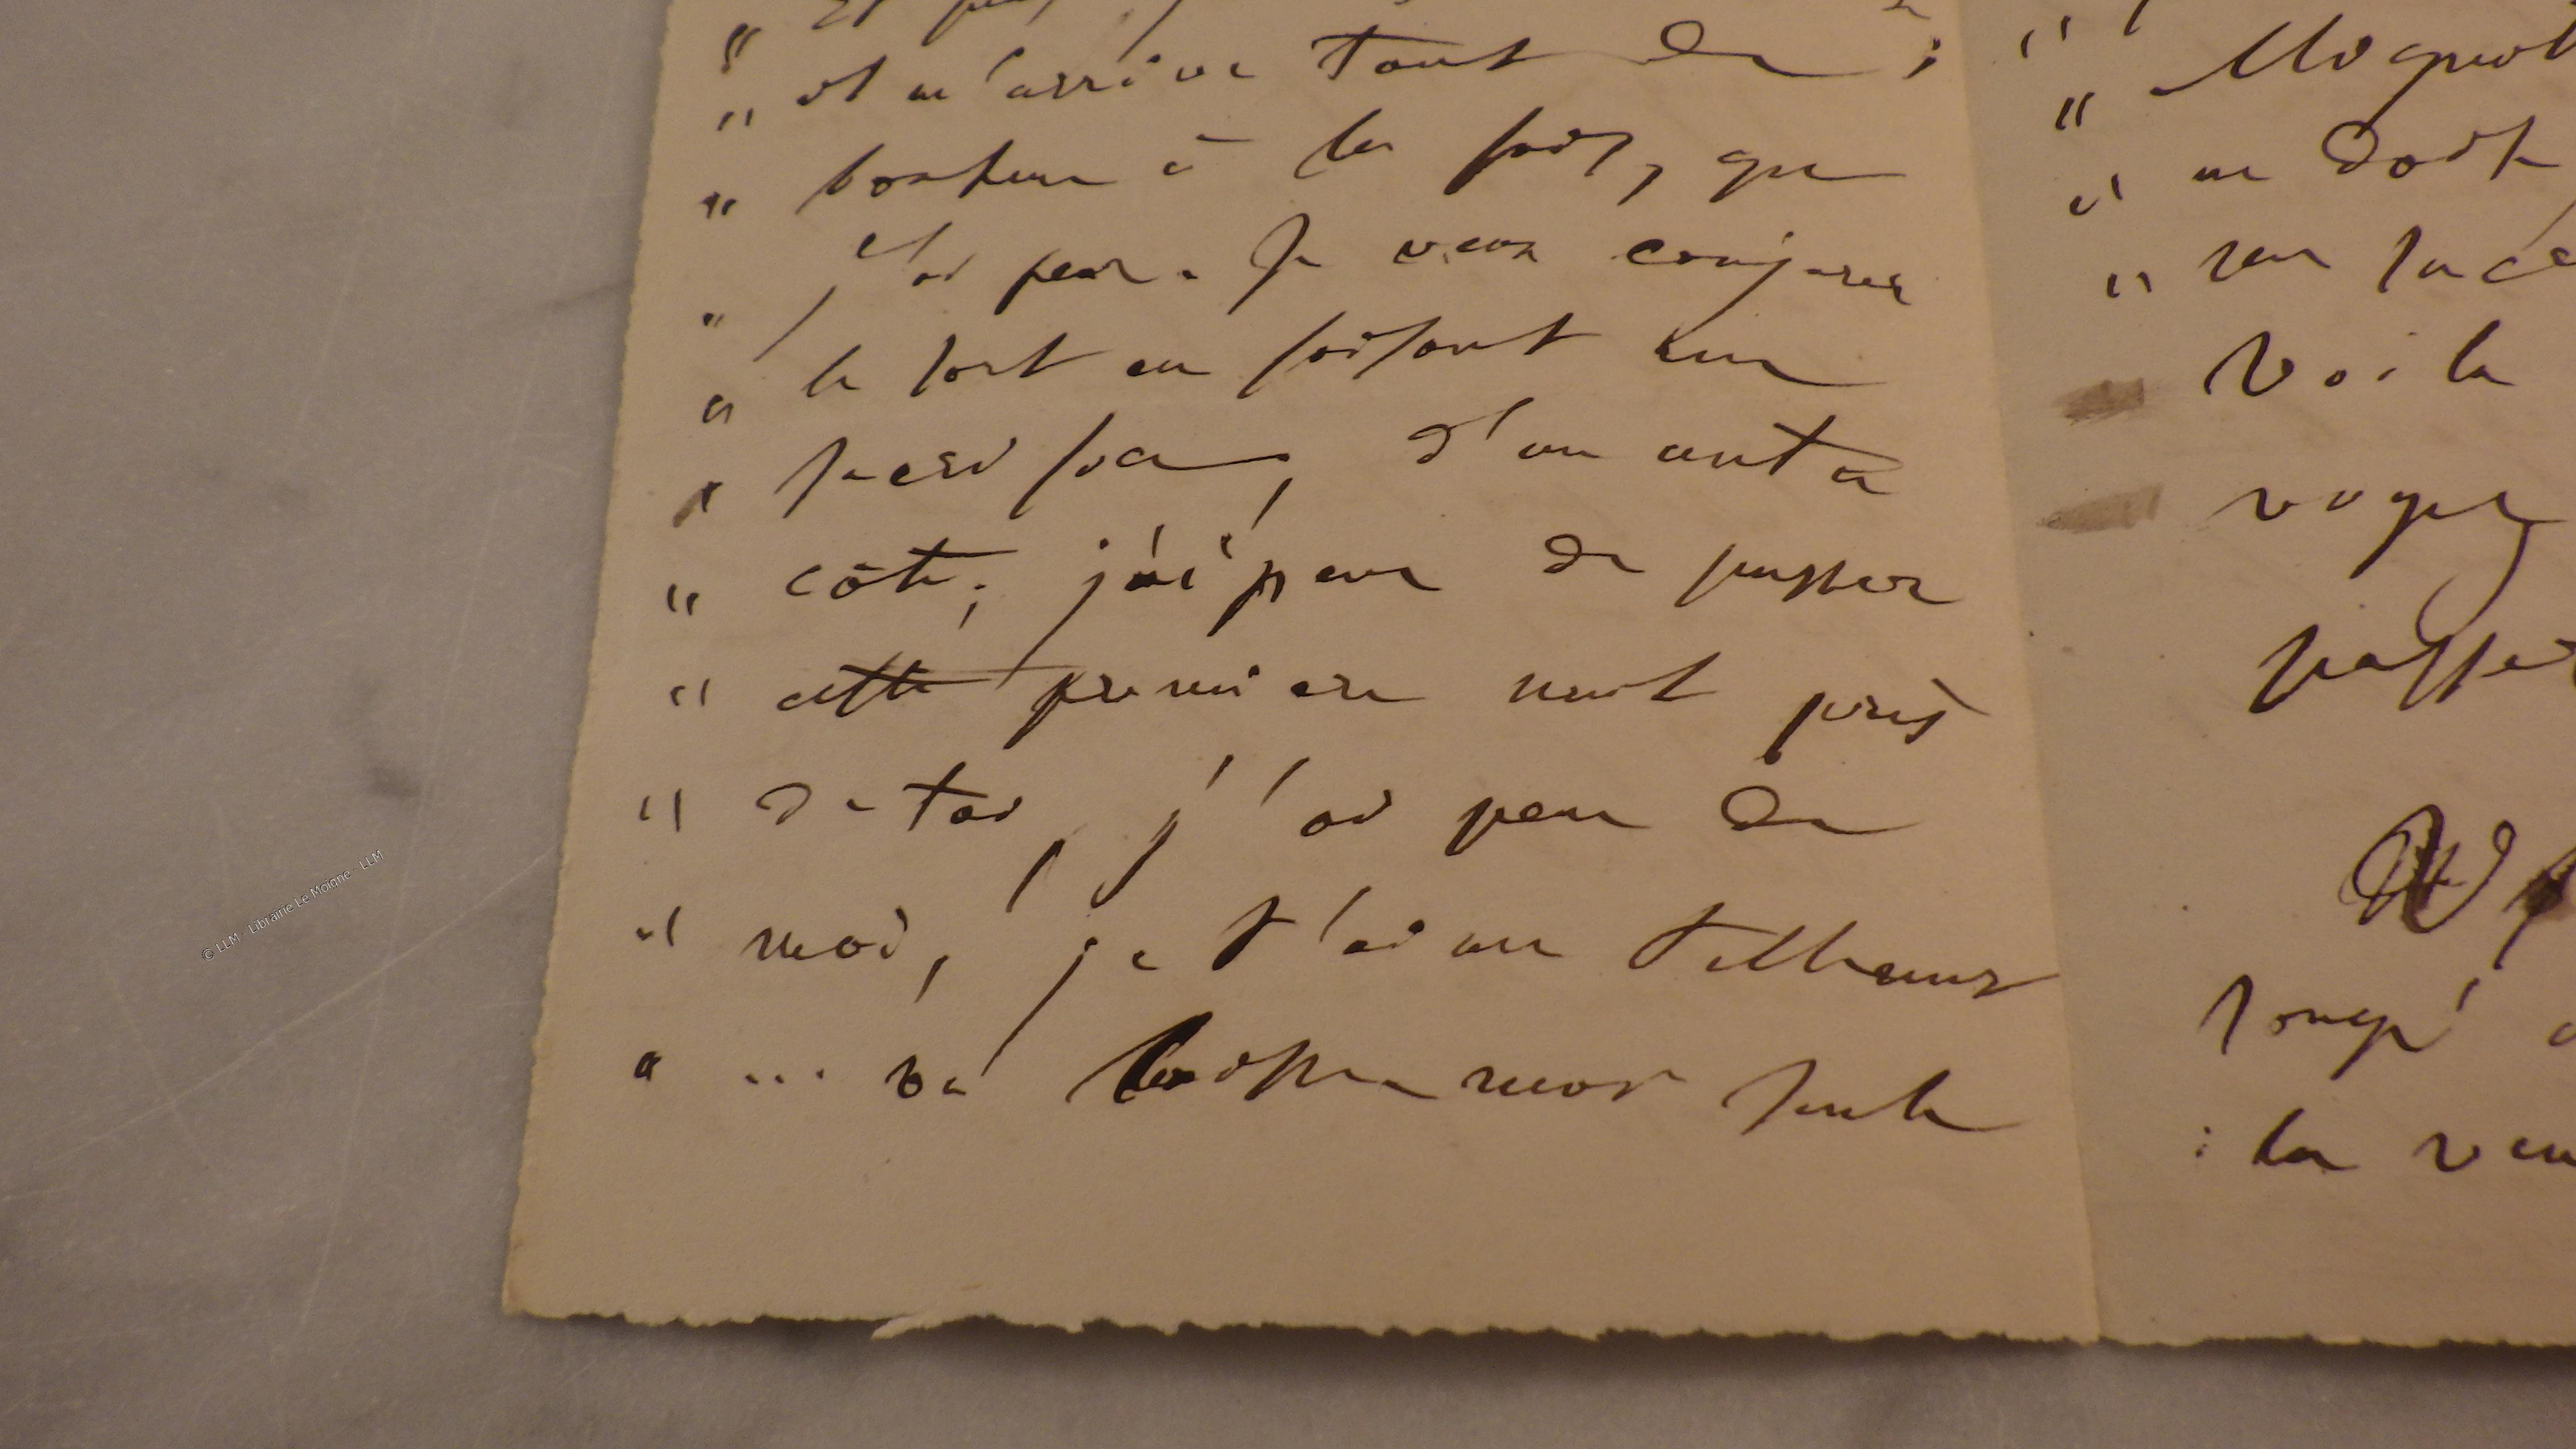 " il m'arrive tant de
" bonheur à la fois, que
j'ai peur. Je veux conjurer
" le sort en faisant un
" sacrifice, d'un autre
" côté, j'ai peur de passer
" cette première nuit près
" de toi, j'ai peur de
" moi, je t'aime tellement
" ... va laisse moi seule
"
"
" me doit
"
voilà
passer
songé
: la
© LLM - Librairie Le Moigne - LLM